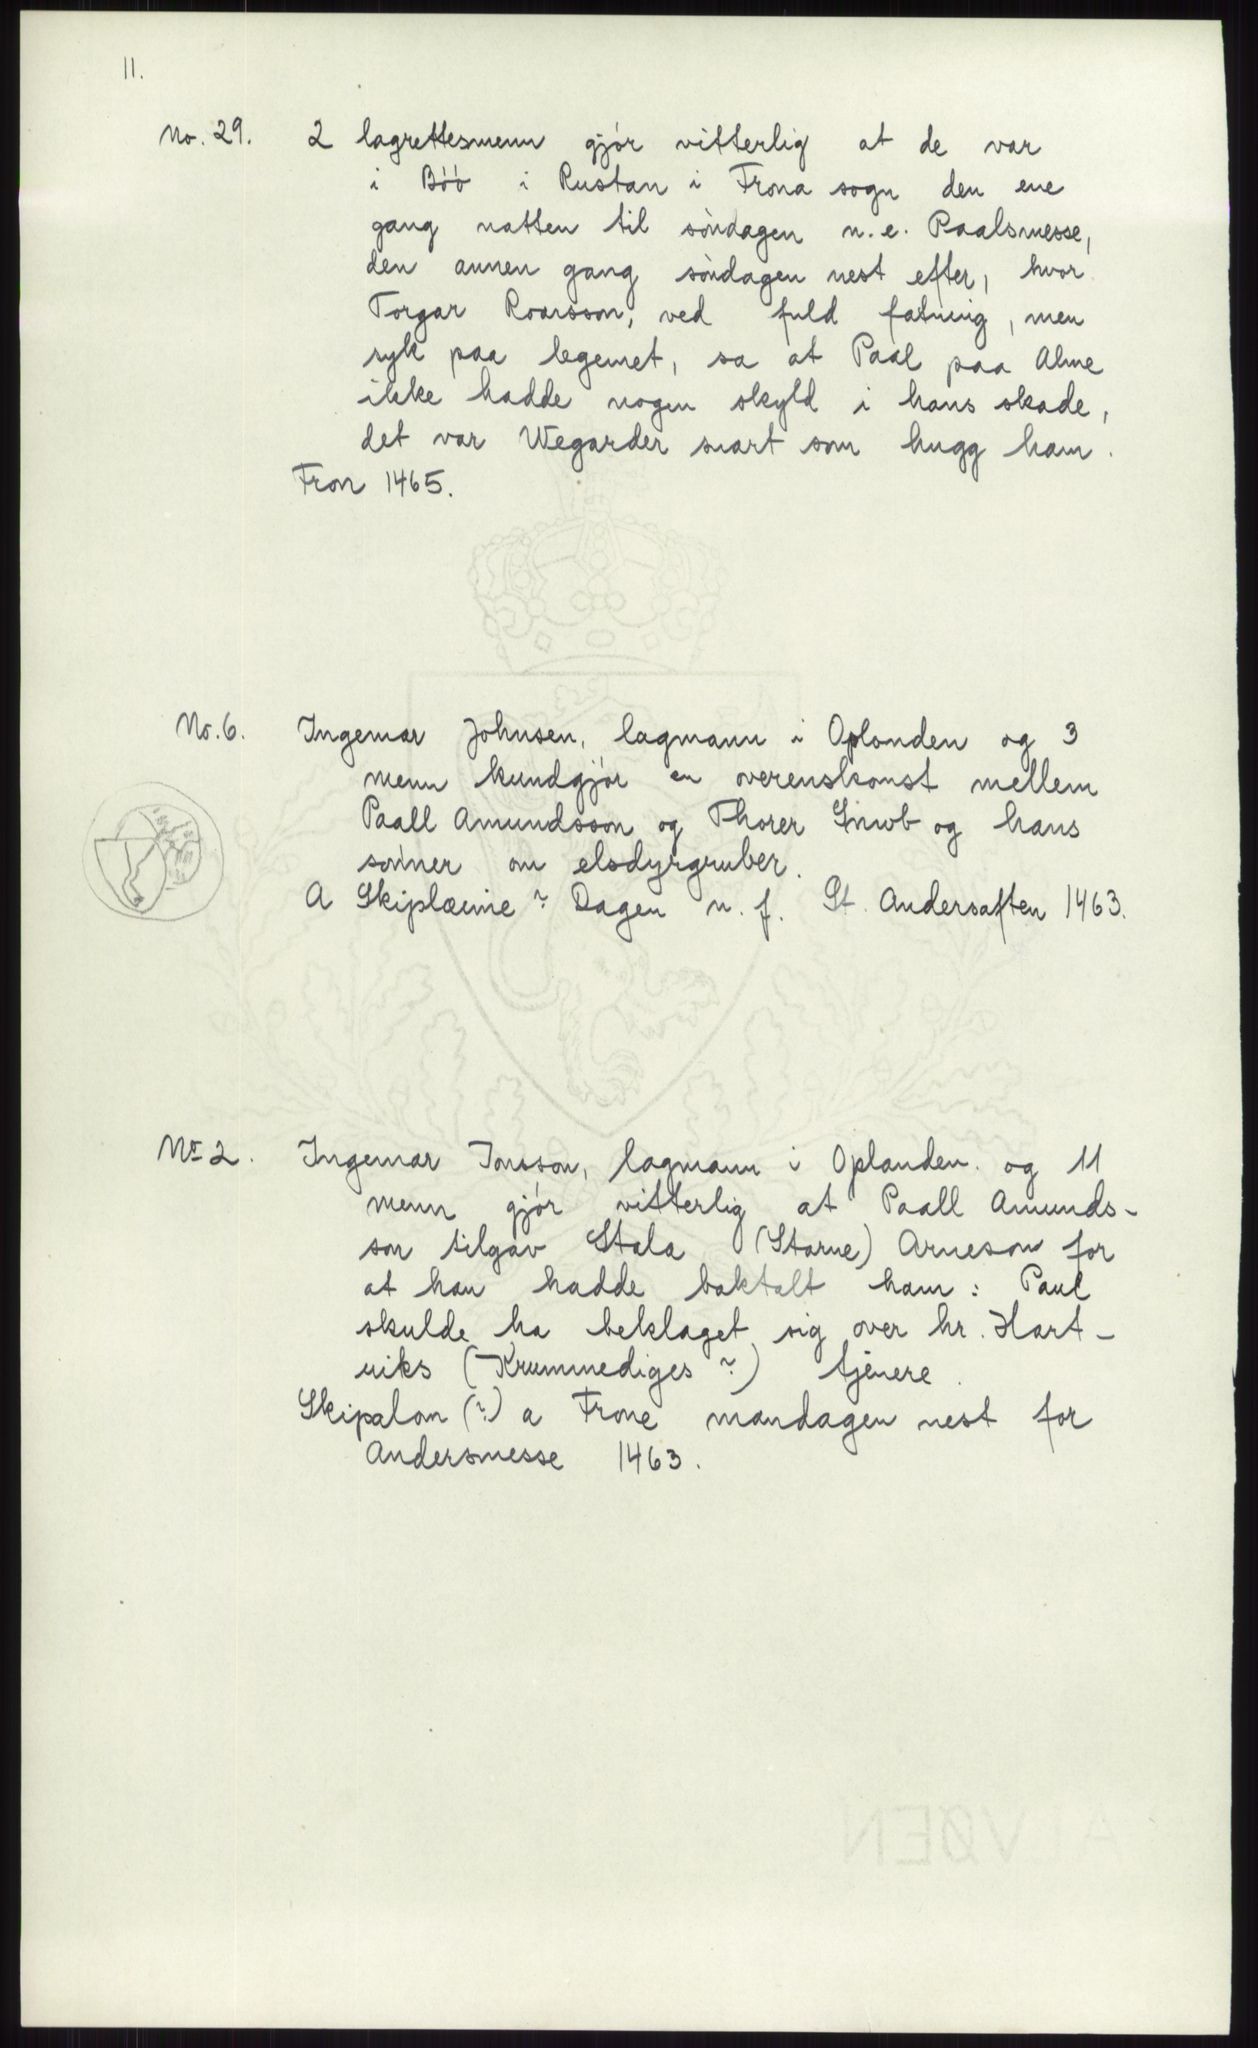 11.
No. 29. 2 lagrettesmenn gjør vitterlig at de var
i Bøø i Rustan i Frona sogn den ene
gang natten til søndagen n. e. Paalsmesse,
den annen gang søndagen nest efter, hvor
Torgar Roarsson, ved fuld fatning, men
syk paa legemet, sa at Paal paa Alme
ikke hadde nogen skyld i hans skade,
det var Wegarder svart som hugg ham.
Fron 1465.
No. 6. Ingemar Johnsen, lagmann i Oplanden og 3
menn kundgjør en overenskomst mellem
Paall Amundsson og Thorer Snwb og hans
sønner om elsdyrgruber.
A Skiplæme ? Dagen n. f. St. Andersaften 1463.
Nr 2. Ingemar Jonsson, lagmann i Oplanden. og 11
menn gjør vitterlig at Paall Amunds-
son tilgav Stala (Starne) Arneson for
at han hadde baktalt ham : Paul
skulde ha beklaget sig over hr. Hart-
viks (Krummediges ?) tjenere.
Skipalom (?) a Frone mandagen nest for
Andersmesse 1463.
ALVØEN